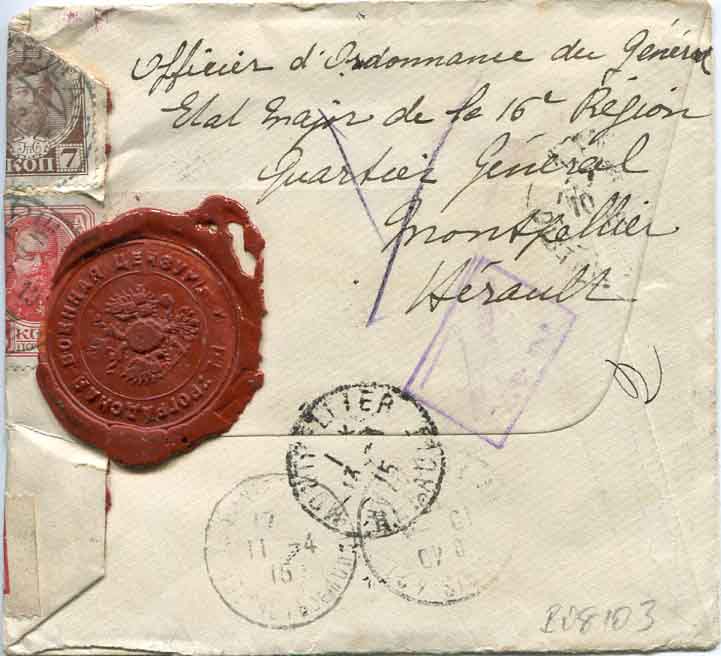 Officier d'Ordonnance du Général
Etat Major de la 16e Région
Quartier Général
Montpellier
Hérault
7
КОП
ПЕТРОГРАДСКАЯ ВОЕННАЯ ЦЕНЗУРА
MONTPELLIER
15
HERAULT
17
11 -4
15